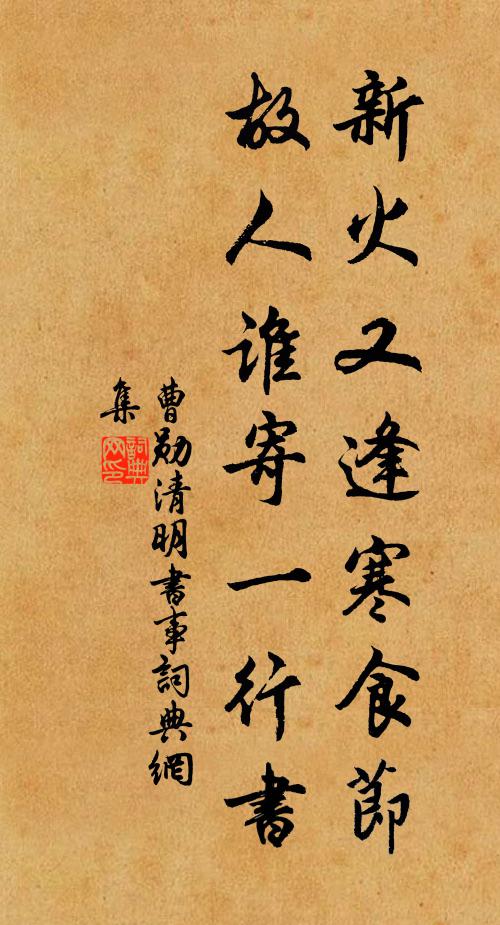 新火又逢寒食節
故人誰寄一行書
曹勛清明書事詞典網
集
詞典網印